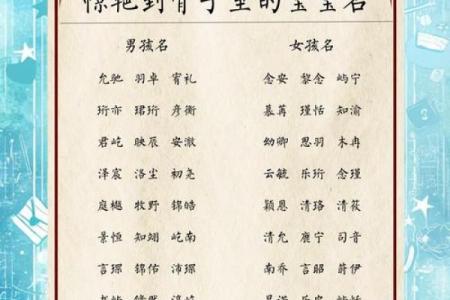 惊艳到骨子里的宝宝名
男孩名 女孩名
允驰 羽卓 宥礼 念安 黎念 屿宁
珩亦 珺珩 彦衡 慕苒 瑾恬 知渝
君屹 映辰 安澈 幼卿 思羽 木冉
泽宸 洛尘 初尧 云毓 乐珩 念瑾
庭樾 牧野 锦皓 颖恩 清珞 清筱
景恒 知翊 屹南 清允 鹿宁 司音
言琛 锦佑 沛琛 南乔 言昭 莳伊